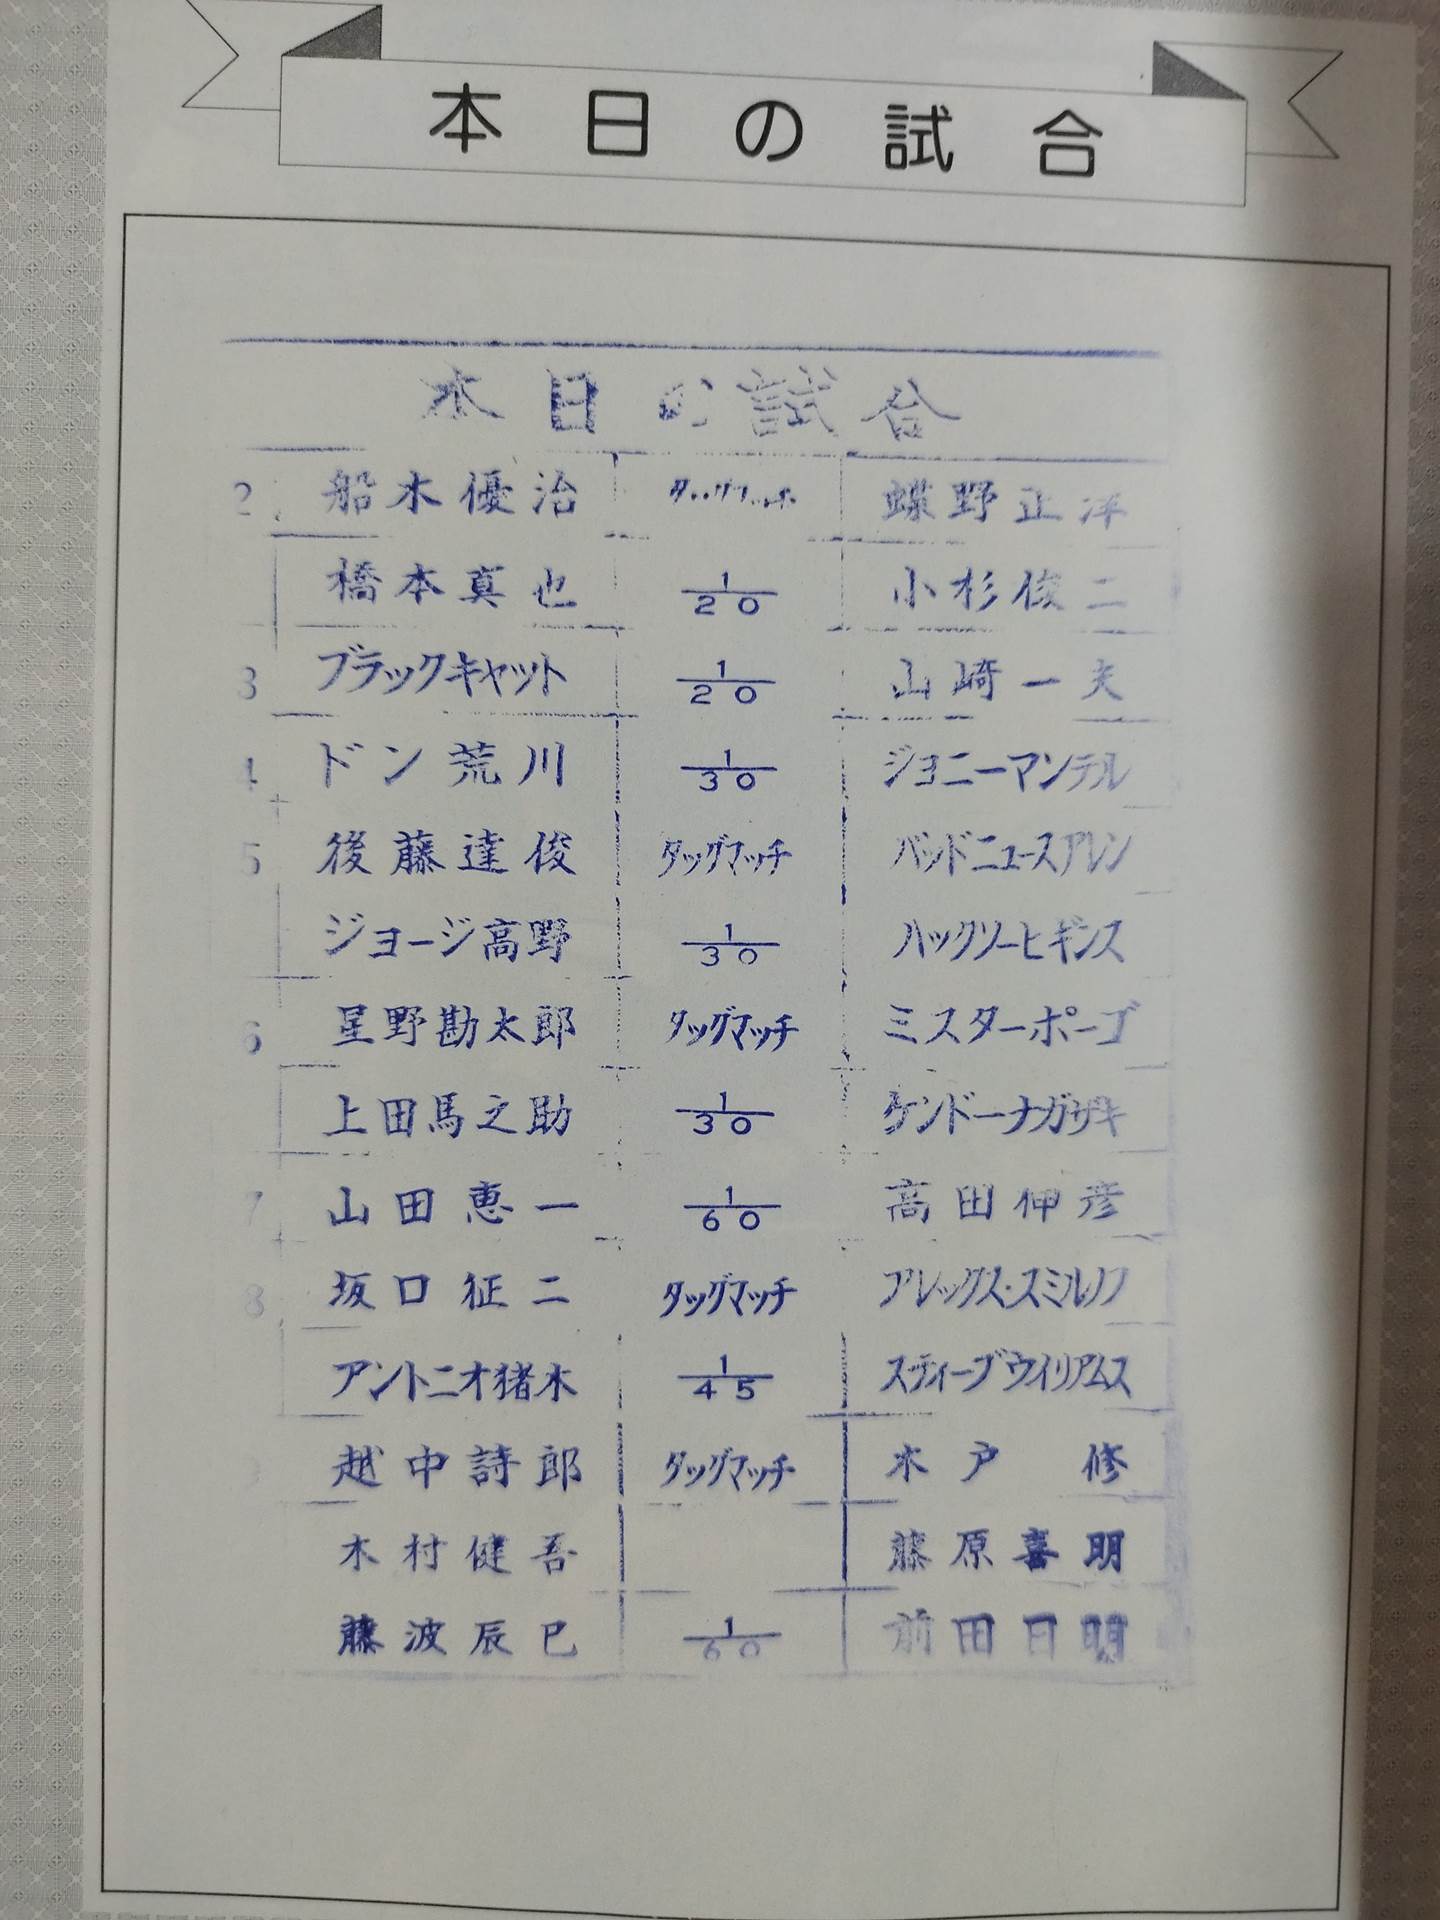 本日の試合
本日の試合
2 船木優治 タッグマッチ 蝶野正洋
橋本真也 1/20 小杉俊二
3 ブラックキャット 1/20 山崎一夫
4 ドン荒川 1/30 ジョニーマンテル
5 後藤達俊 タッグマッチ バッドニュースアレン
ジョージ高野 1/30 ハックソーヒギンス
6 星野勘太郎 タッグマッチ ミスターポーゴ
上田馬之助 1/30 ケンドーナガサキ
7 山田恵一 1/60 高田伸彦
8 坂口征二 タッグマッチ アレックス・スミルノフ
アントニオ猪木 1/45 スティーブウイリアムス
越中詩郎 タッグマッチ 木戸修
木村健吾 藤原喜明
藤波辰巳 1/60 前田日明